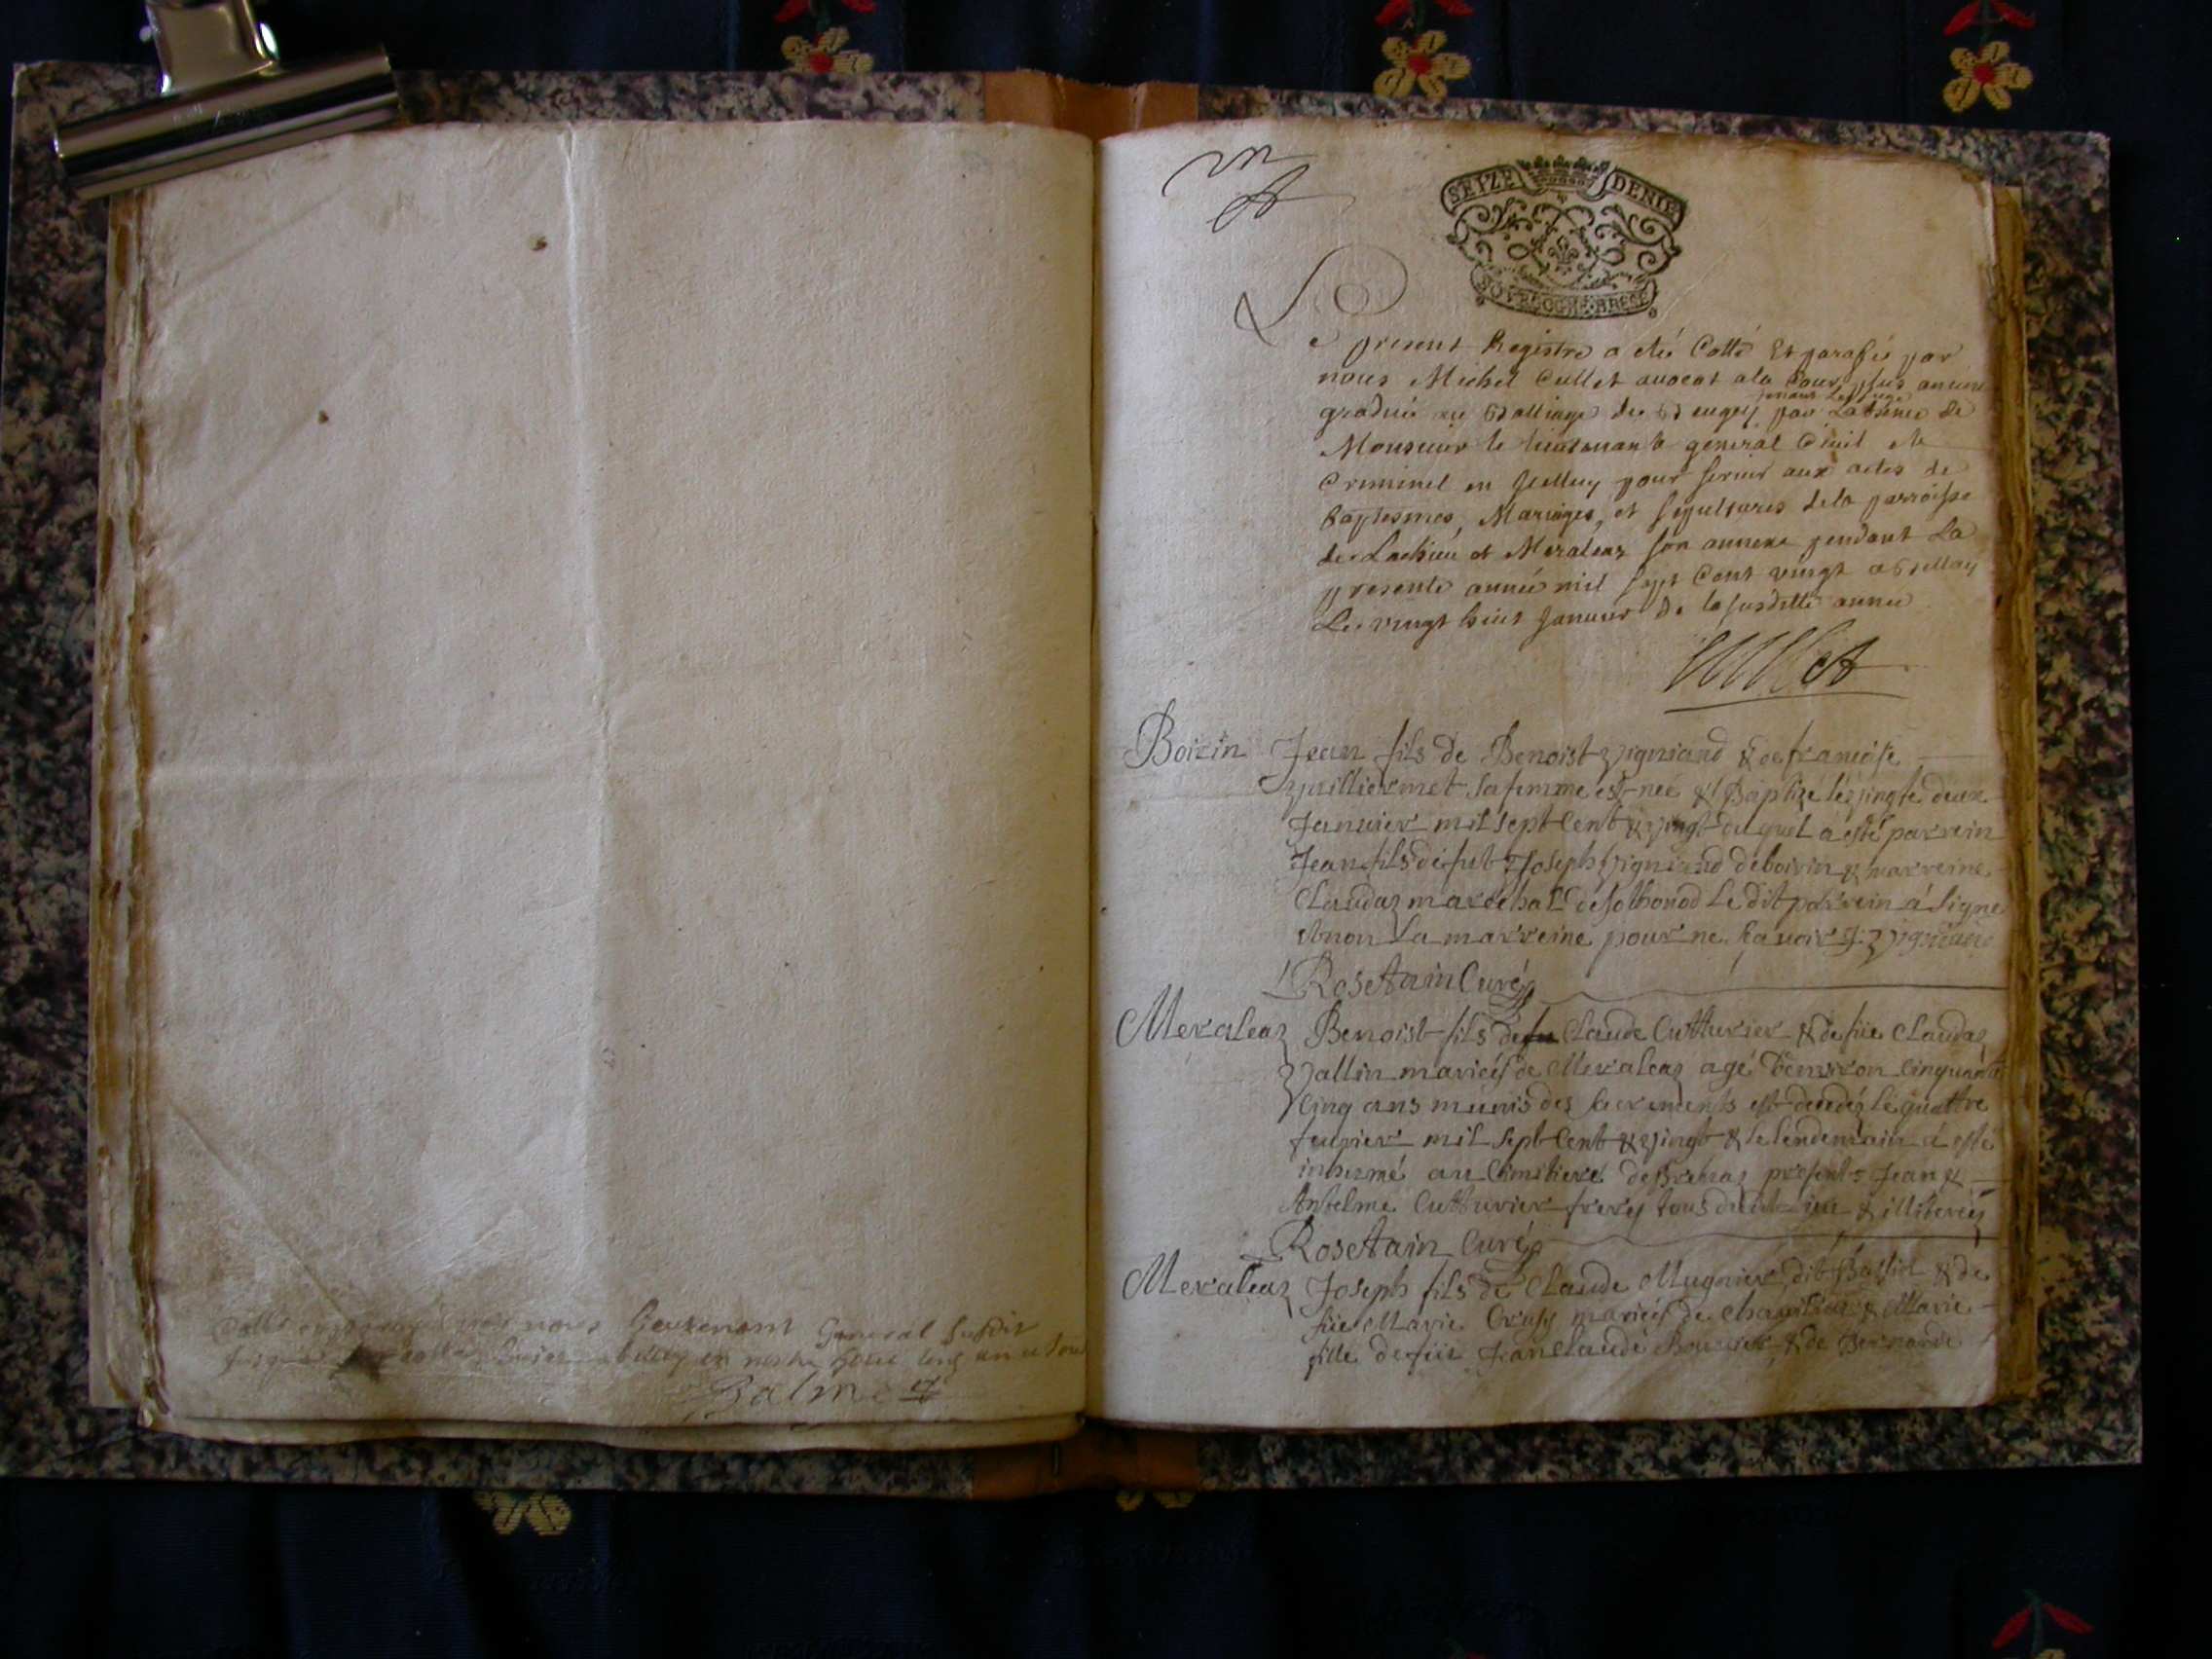 par nous Lieutenant General susdit
Balme
SEIZE DENIE
BOVRGOGNE·BRESSE
Le present Registre a eté Cotté Et parafié par
nous Michel Cullet auocat a la Cour plus ancien
gradué au Balliage du Beugey par Labsence de
Monsieur le lieutenant general Ciuil et
Criminel en Jcelluy pour seruir aux actes de
Baptesmes, Mariages, et sepultures dela parroisse
de Lochieu et Meraleaz son annexe pendant La
presente année mil sept Cent vingt a Belley
Le vingt huit Januier De la susditte année
Cullet
Boirin Jean fils de Benoist Vigniand & de francoise
Vuilliermet sa femme est né & Baptizé le vingte deux
Januier mil sept Cent & vingt du quel à esté parrein
Jean fils de fut Joseph Vigniand de boirin & marreine
Claudaz marechal de sothonod Le dit parrein à signe
et non La marreine pour ne sçauoir J. Vigniand
Rosetain Curé
Meraleaz Benoist fils de Claude Cutturier & de füe Claudaz
Vallin mariés de Meraleaz agé d'enuiron cinquante
cinq ans munis des sacrements est decedéz le quattre
feurier mil sept Cent & vingt & le lendemain à esté
inhumé au Cimitiere de Brenaz presents Jean &
Antelme Cutturier freres tous dudit lieu & illiterés
Rosetain Curé
Meraleaz Joseph fils de Claude Mugnier dit & de
füe Marie mariés de & Marie
fille de füt Jean Claude & de Bernarde